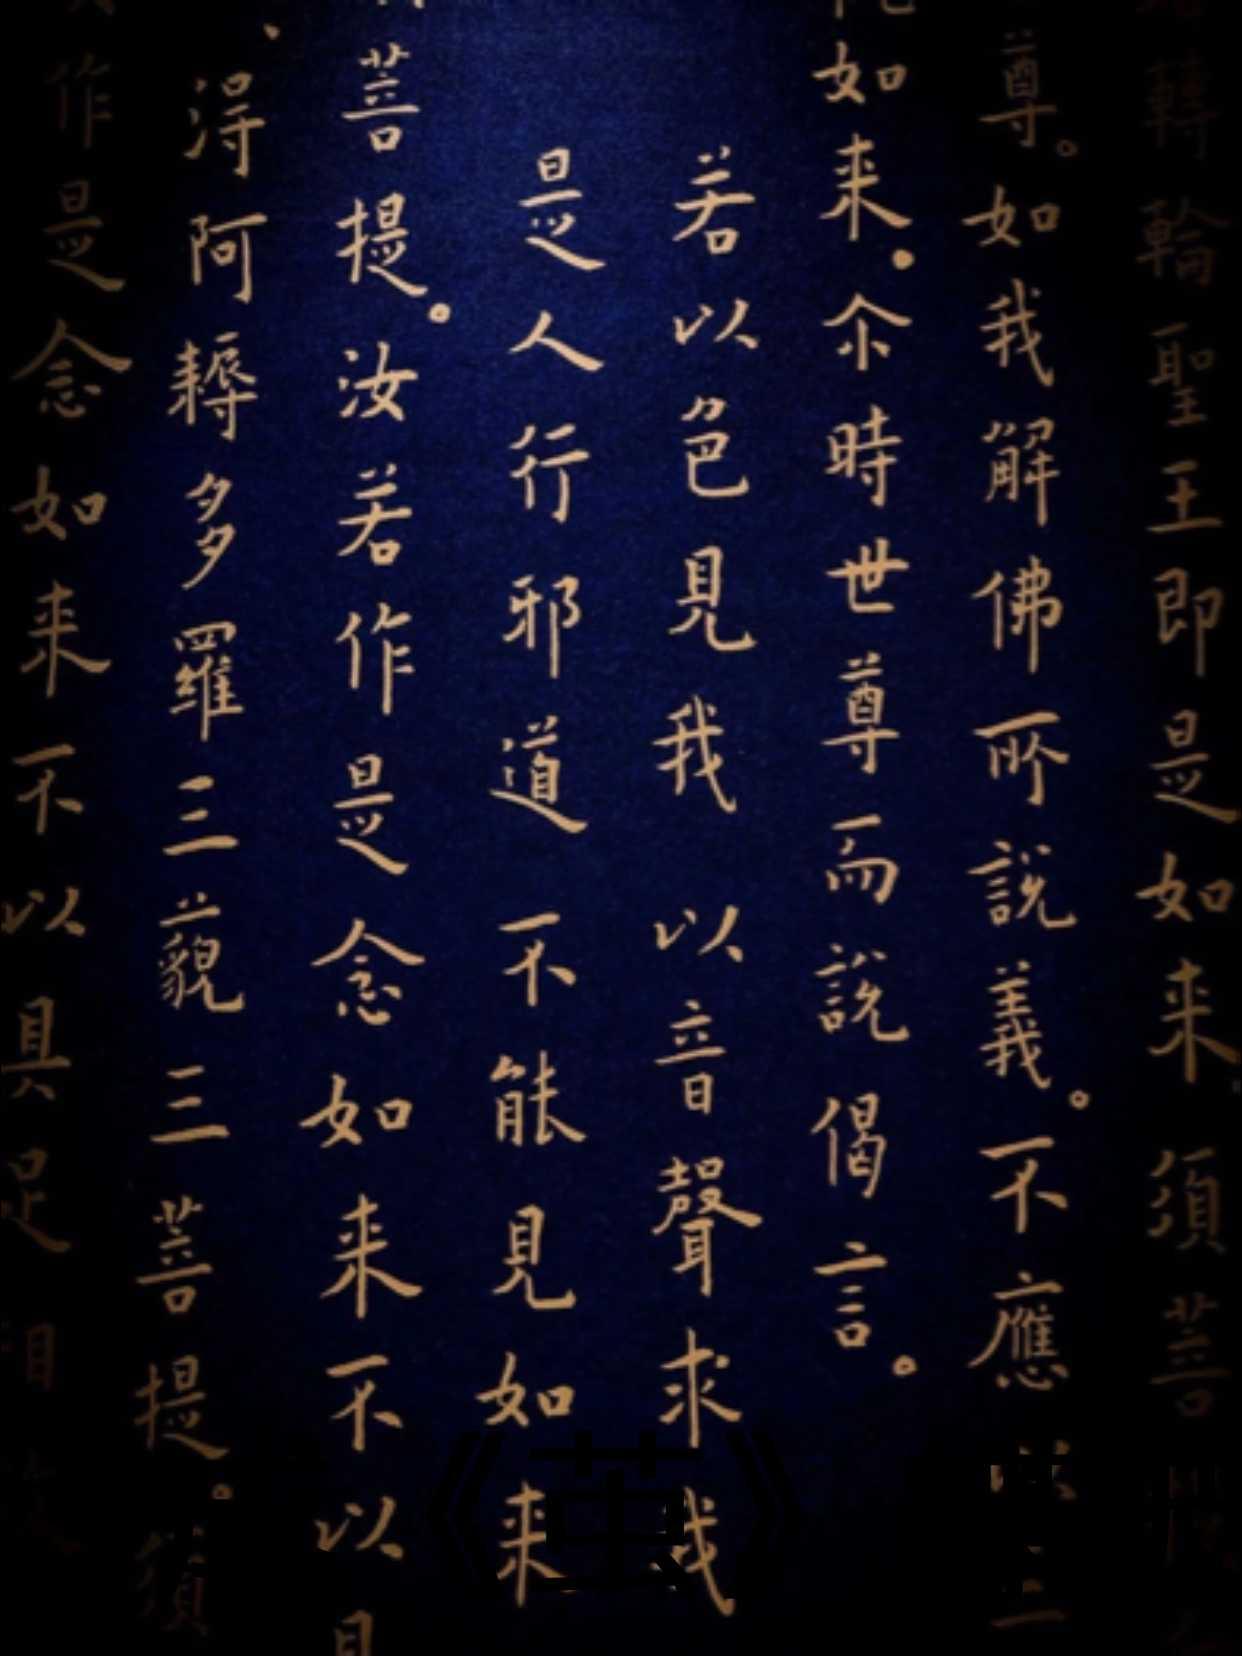 轉輪聖王即是如來須菩
尊。如我解佛所說義。不應以三
如来。尒時世尊而說偈言。
若以色見我以音聲求我
是人行邪道不能見如来
菩提。汝若作是念如来不以具
得阿耨多羅三藐三菩提。須
作是念如来不以具足相故
《茧》